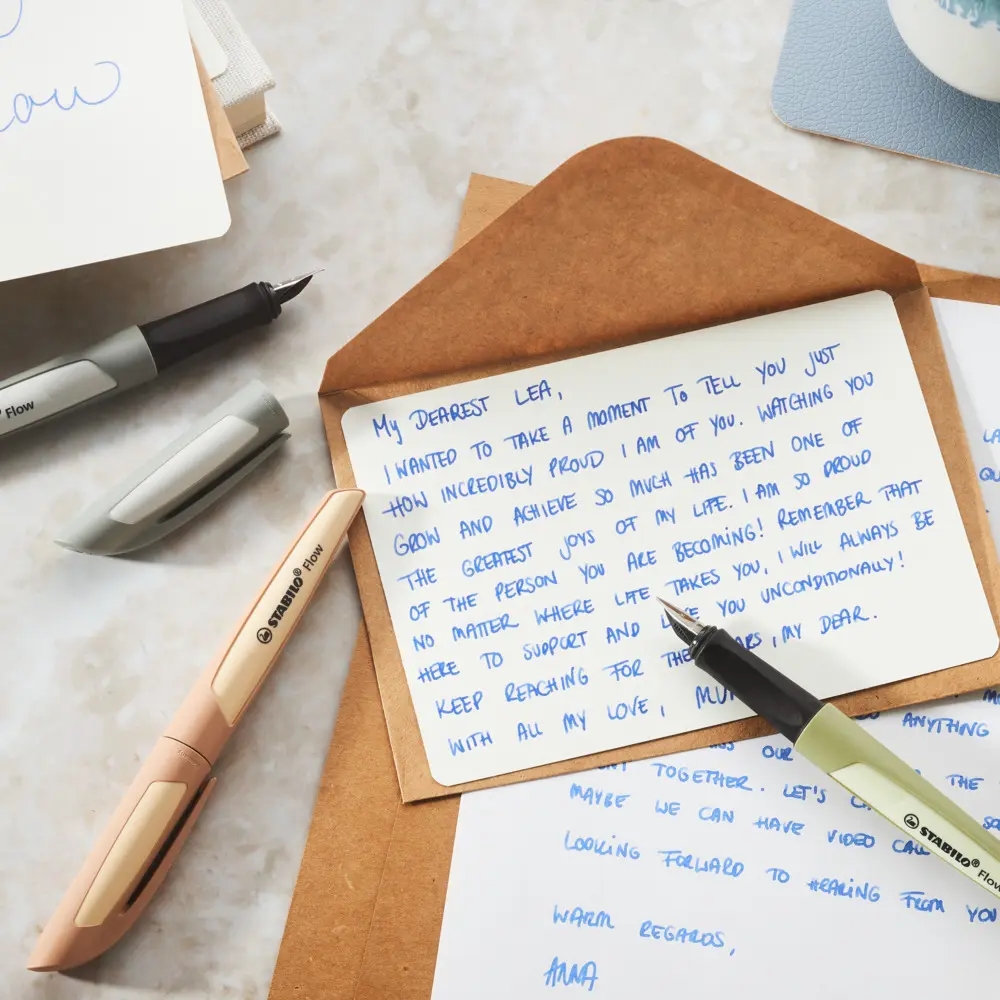 My DEAREST LEA,
I WANTED TO TAKE A MOMENT TO TELL YOU JUST
HOW INCREDIBLY PROUD I AM OF YOU. WATCHING YOU
GROW AND ACHIEVE SO MUCH HAS BEEN ONE OF
THE GREATEST JOYS OF MY LIFE. I AM SO PROUD
OF THE PERSON YOU ARE BECOMING! REMEMBER THAT
NO MATTER WHERE LIFE TAKES YOU, I WILL ALWAYS BE
HERE TO SUPPORT AND YOU UNCONDITIONALLY!
KEEP REACHING FOR , MY DEAR.
WITH ALL MY LOVE,
ANYTHING
OUR THE
TOGETHER. LET'S
MAYBE WE CAN HAVE VIDEO
LOOKING FORWARD TO HEARING FROM YOU
WARM REGARDS,
ANNA
Flow
STABILO® Flow
STABILO® Flow